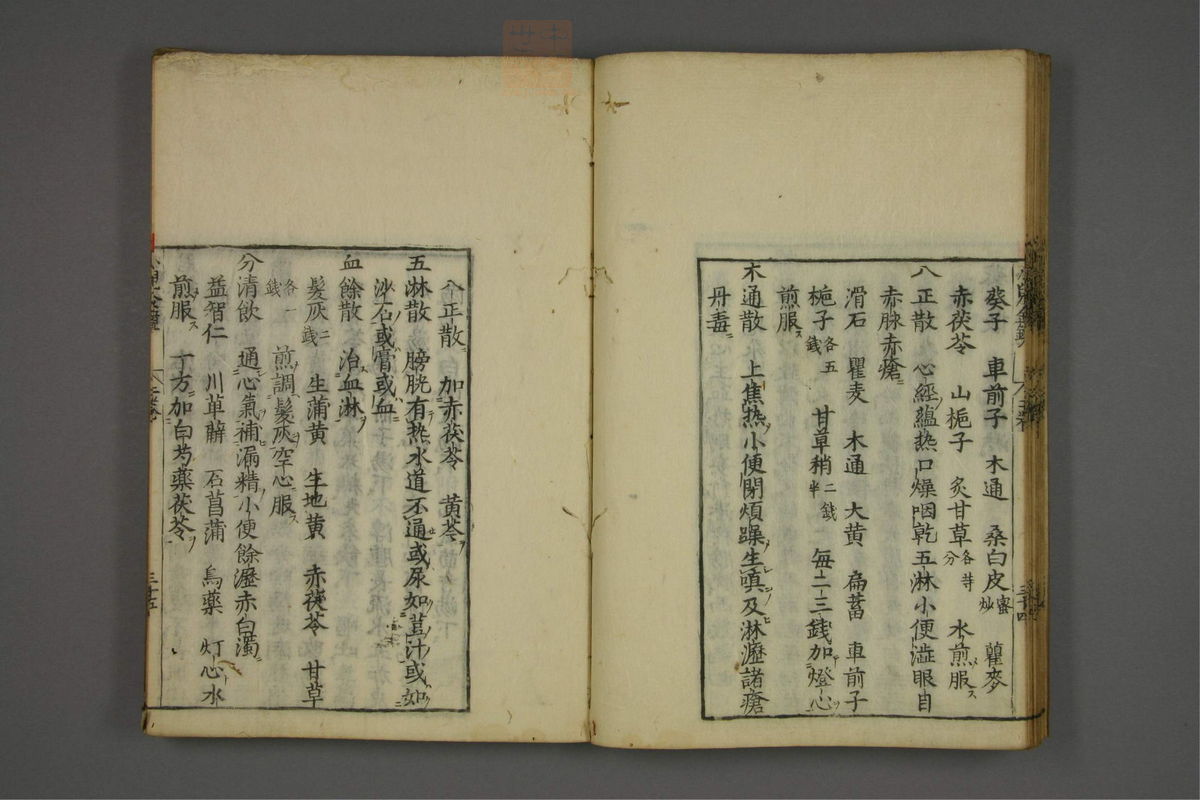 葵子 車前子 木通 桑白皮蜜炒 瞿麥
赤茯苓 山梔子 炙甘草各等分 水煎服ス
八正散 心經蘊熱口燥咽乾五淋小便澁眼目
赤脉赤瘡ニ
滑石 瞿麦 木通 大黄 扁蓄 車前子
梔子各五錢 甘草稍二錢半 每二三錢加燈心
煎服ス
木通散 上焦熱小便閉煩躁生嗔及淋瀝諸瘡
丹毒ニ
八正散ニ 加赤茯苓 黄芩ヲ
五淋散 膀胱有熱水道不通或尿如荳汁或如
沙石或膏或血
血餘散 治血淋ヲ
髮灰二錢 生蒲黄 生地黄 赤茯苓 甘草
各一錢 煎調髮灰空心服ス
分清飲 通心氣補漏精小便餘瀝赤白濁ニ
益智仁 川萆薢 石菖蒲 烏藥 灯心水
煎服ス 一方加白芍藥茯苓ヲ
三十五